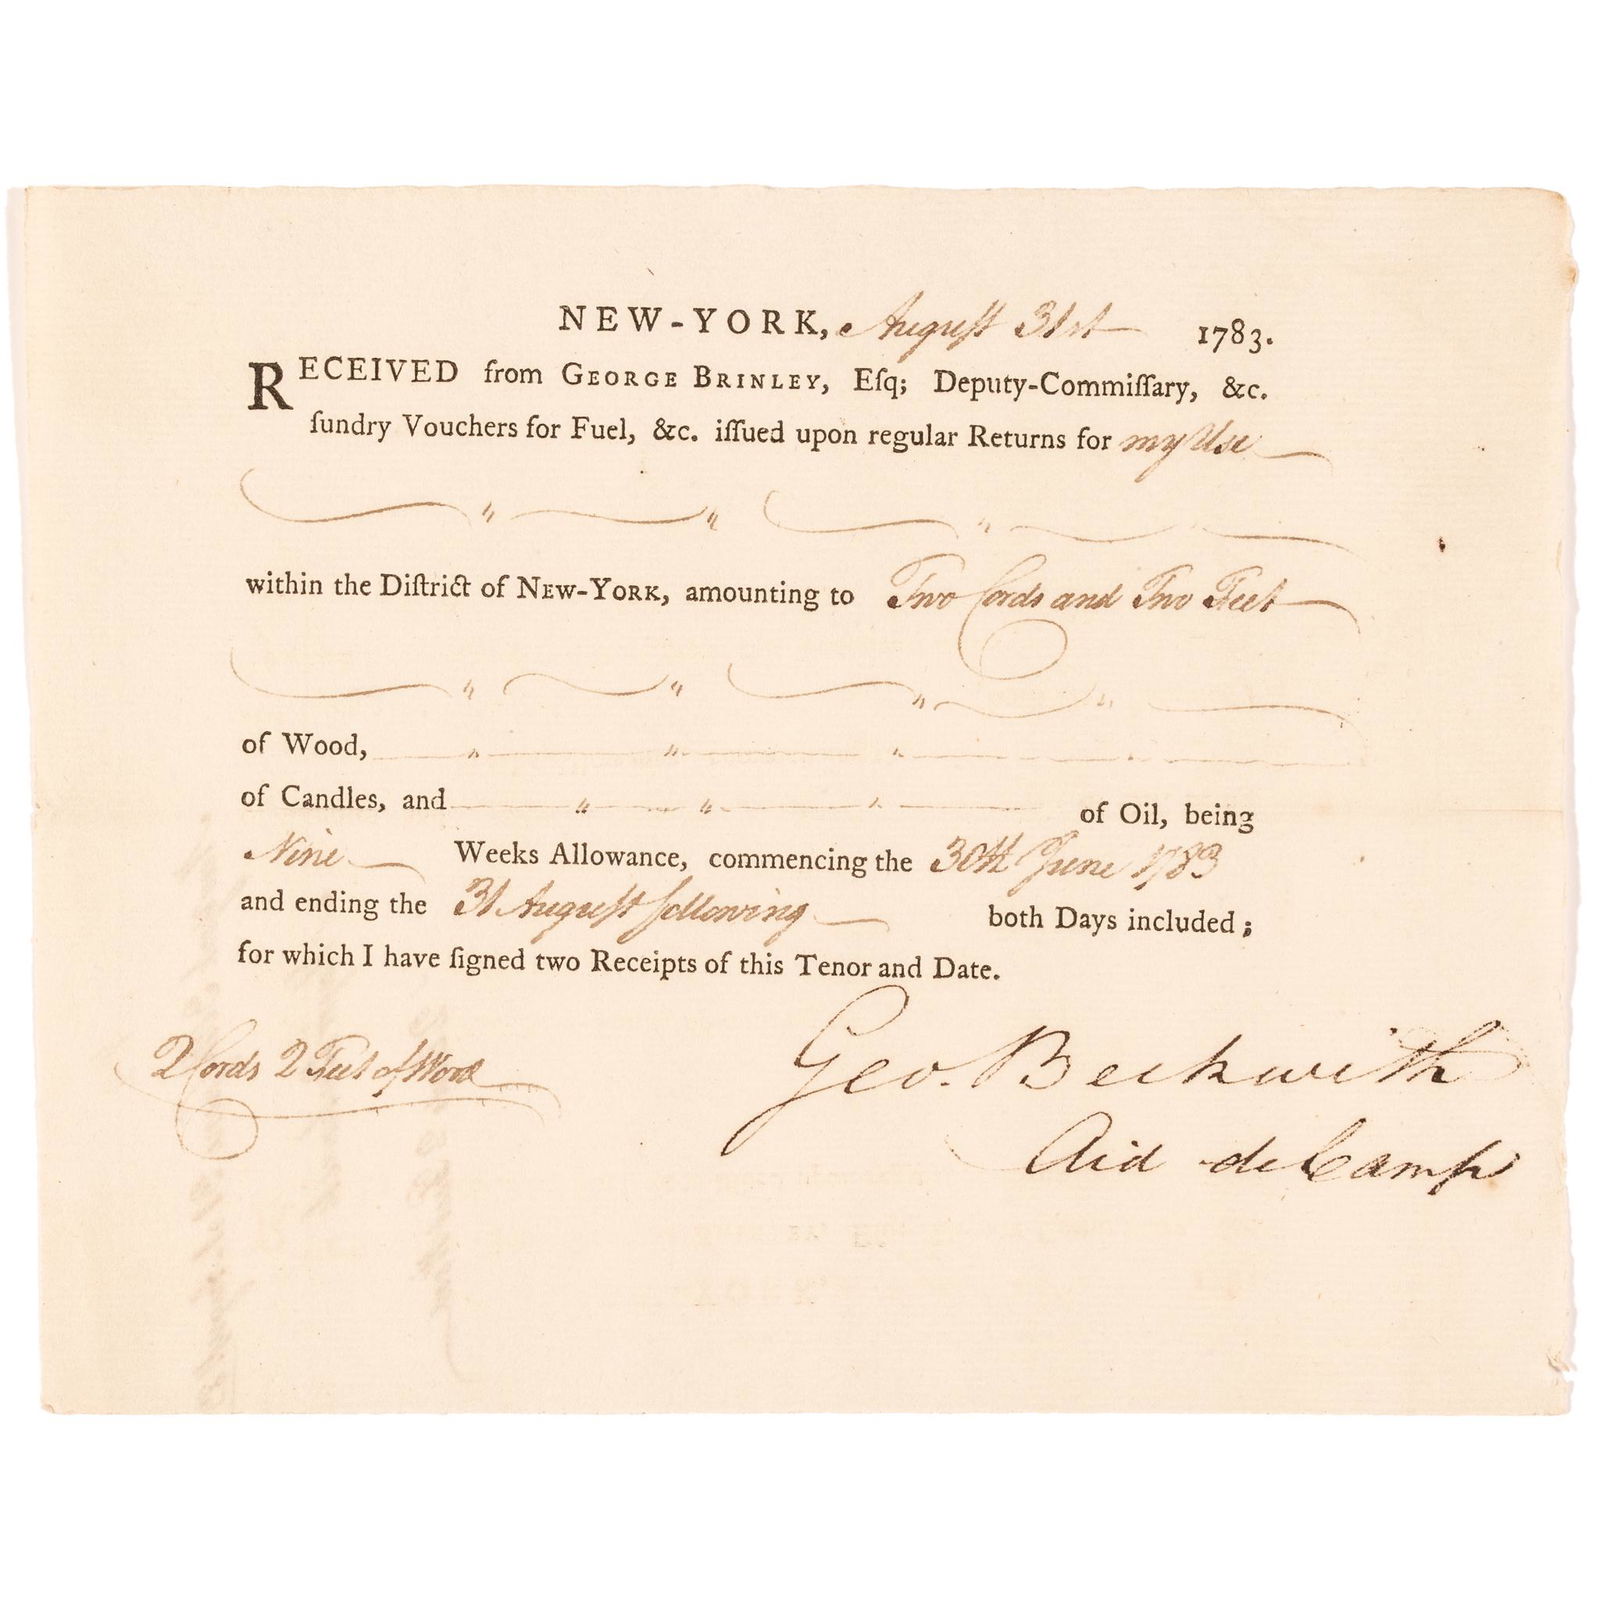 NEW-YORK, Auguſt 31st 1783.
RECEIVED from GEORGE BRINLEY, Eſq; Deputy-Commiſſary, &c.
ſundry Vouchers for Fuel, &c. iſſued upon regular Returns for my Use
" " "
within the Diſtrict of NEW-YORK, amounting to Two Cords and Two Feet
" " " "
of Wood, " " "
of Candles, and " " " of Oil, being
Nine Weeks Allowance, commencing the 30th June 1783
and ending the 31 Auguſt following both Days included;
for which I have ſigned two Receipts of this Tenor and Date.
2 Cords 2 Feet of Wood
Geo. Beckwith
Aid de Camp